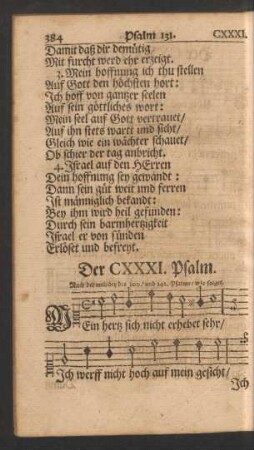 384 Psalm 131. CXXXI.
Damit daß dir demütig
Mit furcht werd ehr erzeigt.
3. Mein hoffnung ich thu stellen
Auf Gott den höchsten hort:
Ich hoff von gantzer seelen
Auf sein göttliches wort:
Mein seel auf Gott vertrauet/
Auf ihn stets wartt und sicht/
Gleich wie ein wächter schauet/
Ob schier der tag anbricht.
4. Israel auf den HErren
Dein hoffnung sey gewandt:
Dann sein güt weit und ferren
Ist männiglich bekandt:
Bey ihm wird heil gefunden:
Durch sein barmhertzigkeit
Israel er von sünden
Erlöset und befreyt.
Der CXXXI. Psalm.
Nach der melodey des 100/ und 142. Psalmen/ wie folget.
MEin hertz sich nicht erhebet sehr/
Ich werff nicht hoch auf mein gesicht/
Ich